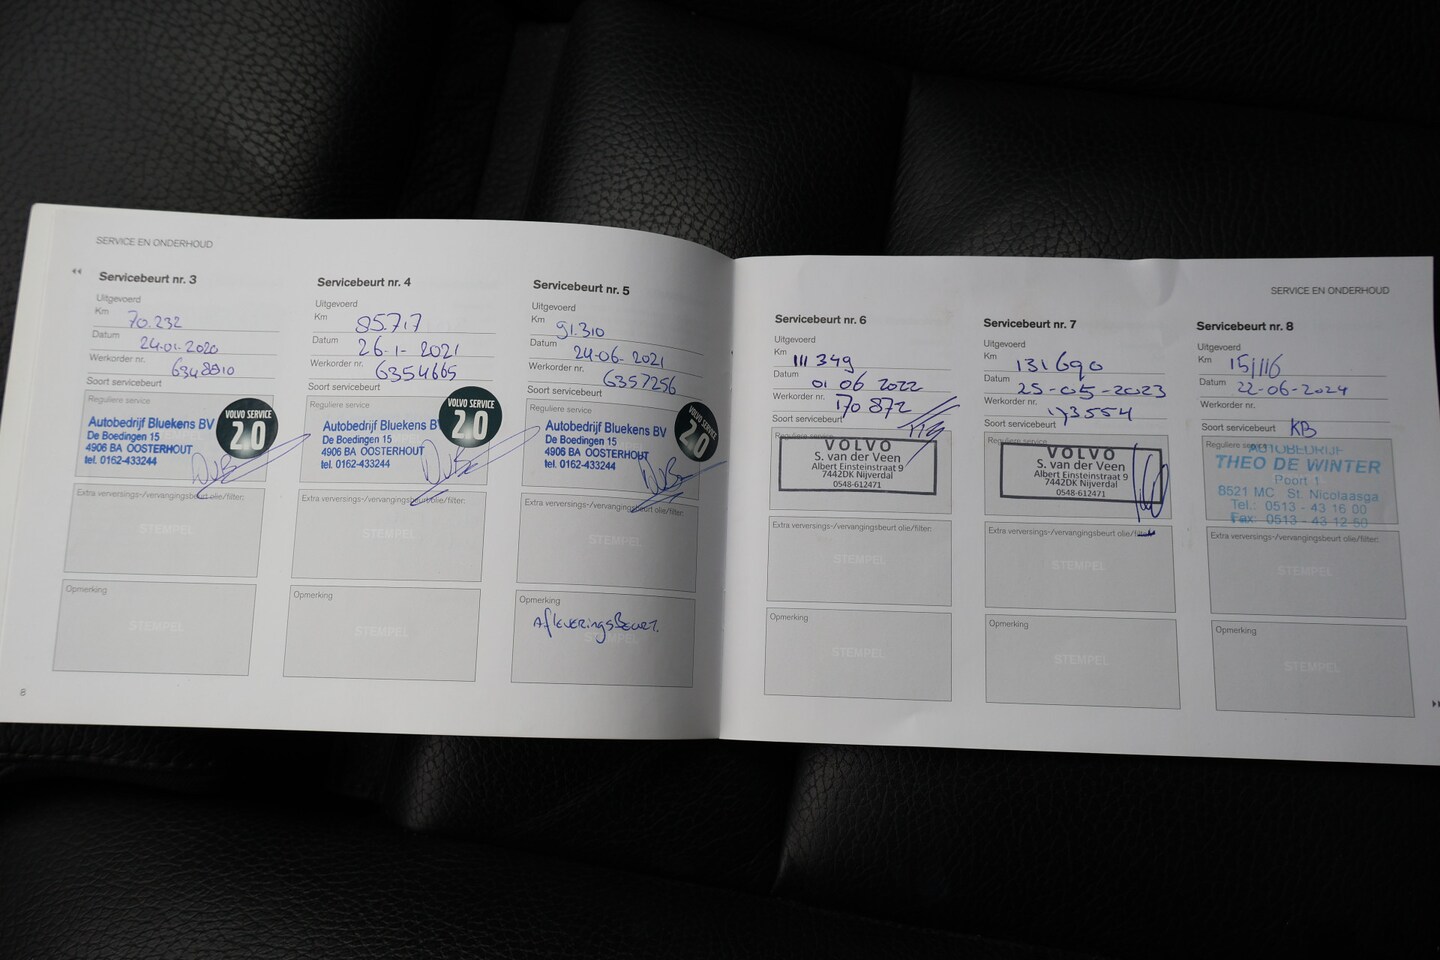 SERVICE EN ONDERHOUD
Servicebeurt nr. 3
Uitgevoerd
Km 70.232
Datum 24-01-2020
Werkorder nr. 6348910
Soort servicebeurt
Reguliere service
Autobedrijf Bluekens BV
De Boedingen 15
4906 BA OOSTERHOUT
tel. 0162-433244
VOLVO SERVICE
2.0
Extra verversings-/vervangingsbeurt olie/filter:
STEMPEL
Opmerking
STEMPEL
6
Servicebeurt nr. 4
Uitgevoerd
Km 85.717
Datum 26-1-2021
Werkorder nr. 6354665
Soort servicebeurt
Reguliere service
Autobedrijf Bluekens B
De Boedingen 15
4906 BA OOSTERHOUT
tel. 0162-433244
VOLVO SERVICE
2.0
Extra verversings-/vervangingsbeurt olie/filter:
STEMPEL
Opmerking
STEMPEL
Servicebeurt nr. 5
Uitgevoerd
Km 91.310
Datum 24-06-2021
Werkorder nr. 6357256
Soort servicebeurt
Reguliere service
Autobedrijf Bluekens BV
De Boedingen 15
4906 BA OOSTERHOUT
tel. 0162-433244
VOLVO SERVICE
2.0
Extra verversings-/vervangingsbeurt olie/filter:
STEMPEL
Opmerking
Afleveringsbeurt.
Servicebeurt nr. 6
Uitgevoerd
Km 111 349
Datum 01 06 2022
Werkorder nr. 170 872
Soort servicebeurt
Reguliere service
VOLVO
S. van der Veen
Albert Einsteinstraat 9
7442DK Nijverdal
0548-612471
Extra verversings-/vervangingsbeurt olie/filter:
STEMPEL
Opmerking
STEMPEL
SERVICE EN ONDERHOUD
Servicebeurt nr. 7
Uitgevoerd
Km 131 690
Datum 25-05-2023
Werkorder nr. 173554
Soort servicebeurt
Reguliere service
VOLVO
S. van der Veen
Albert Einsteinstraat 9
7442DK Nijverdal
0548-612471
Extra verversings-/vervangingsbeurt olie/filter:
STEMPEL
Opmerking
STEMPEL
Servicebeurt nr. 8
Uitgevoerd
Km 151116
Datum 22-06-2024
Werkorder nr.
Soort servicebeurt KB
Reguliere service
AUTOBEDRIJF
THEO DE WINTER
Poort 1
8521 MC St. Nicolaasga
Tel.: 0513 - 43 16 00
Fax: 0513 - 43 12 50
Extra verversings-/vervangingsbeurt olie/filter:
STEMPEL
Opmerking
STEMPEL